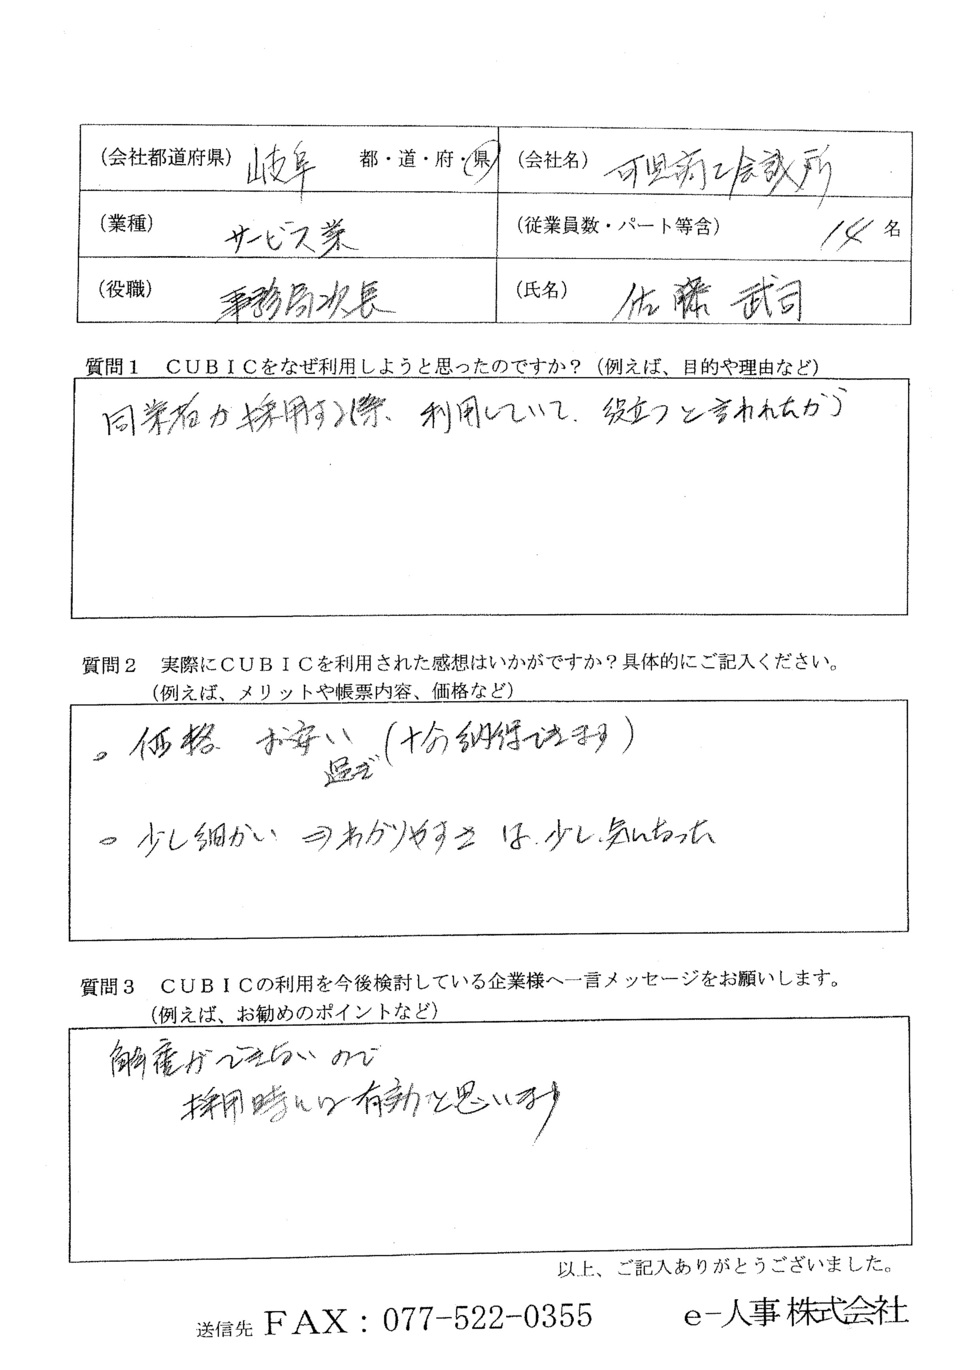 (会社都道府県) 岐阜 都・道・府・県 (会社名) 可児商工会議所
(業種) サービス業 (従業員数・パート等含) 14 名
(役職) 事務局次長 (氏名) 佐藤 武司
質問1 CUBICをなぜ利用しようと思ったのですか?(例えば、目的や理由など)
同業者が採用する際、利用していて、役立つと言われたから
質問2 実際にCUBICを利用された感想はいかがですか?具体的にご記入ください。
(例えば、メリットや帳票内容、価格など)
。価格 お安い(十分納得できます)
過ぎ
○少し細かい ⇒わかりやすさは、少し気になった
質問3 CUBICの利用を今後検討している企業様へ一言メッセージをお願いします。
(例えば、お勧めのポイントなど)
解雇ができないので
採用時には有効と思います
以上、ご記入ありがとうございました。
送信先 FAX:077-522-0355 e-人事株式会社